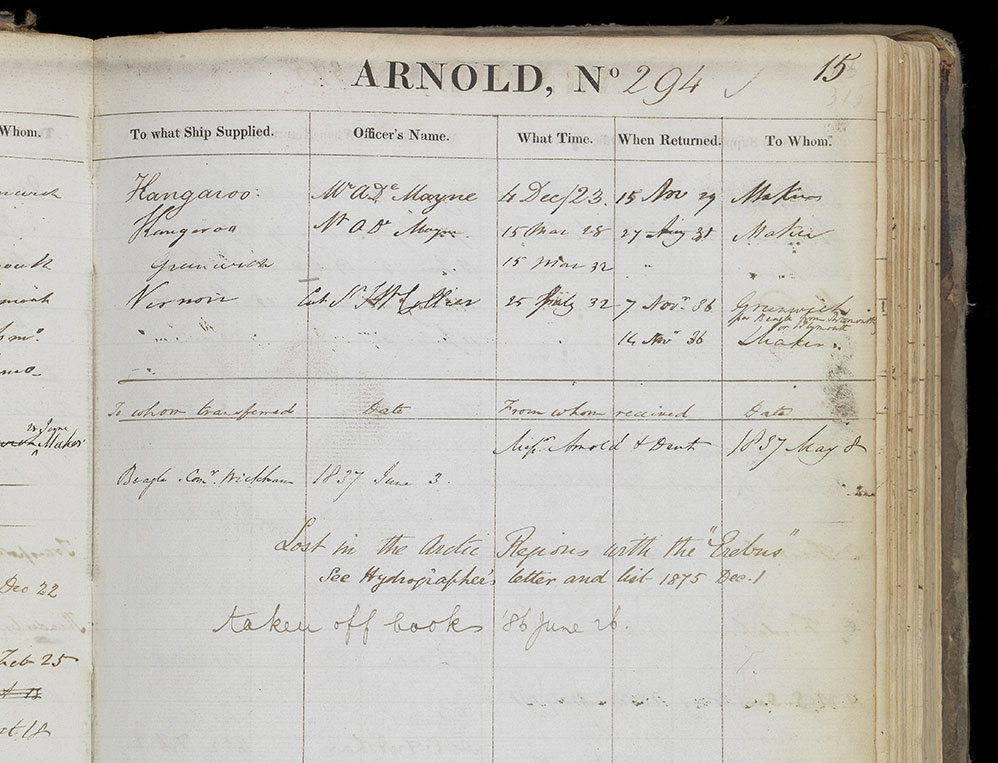 ARNOLD, Nº 294 15
Whom. To what Ship Supplied. Officer's Name. What Time. When Returned. To Whom.
Kangaroo. Mr A De Mayne 4 Dec/23. 15 Nov 29 Makers
Kangaroo Mr A De Mayne 15 Mar 28 27 Aug 31 Maker
Greenwich 15 Mar 32 "
Vernon Sr Collier 25 July 32 7 Novr 36 Greenwich
per Beagle from Portsmouth
or Plymouth
" " " 14 Novr 36 Maker
To whom transferred Date From whom received Date
Maker Messrs Arnold & Dent 1837 May 8
Beagle Comr. Wickham 1837 June 3.
Lost in the Arctic Regions with the "Erebus"
See Hydrographer's letter and list 1875 Dec. 1
Dec 22
taken off books '86 June 26.
Feb 25